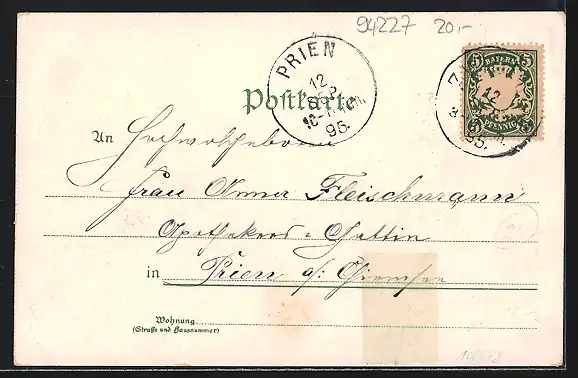 94227 20,-
PRIEN
12
SEP
95.
BAYERN
5 5
12
PFENNIG
95.
Postkarte
An Hochwohlgeboren
Frau Anna Fleischmann
Apothekers-Gattin
in Prien a/ Chiemsee
Wohnung
(Straße und Hausnummer)